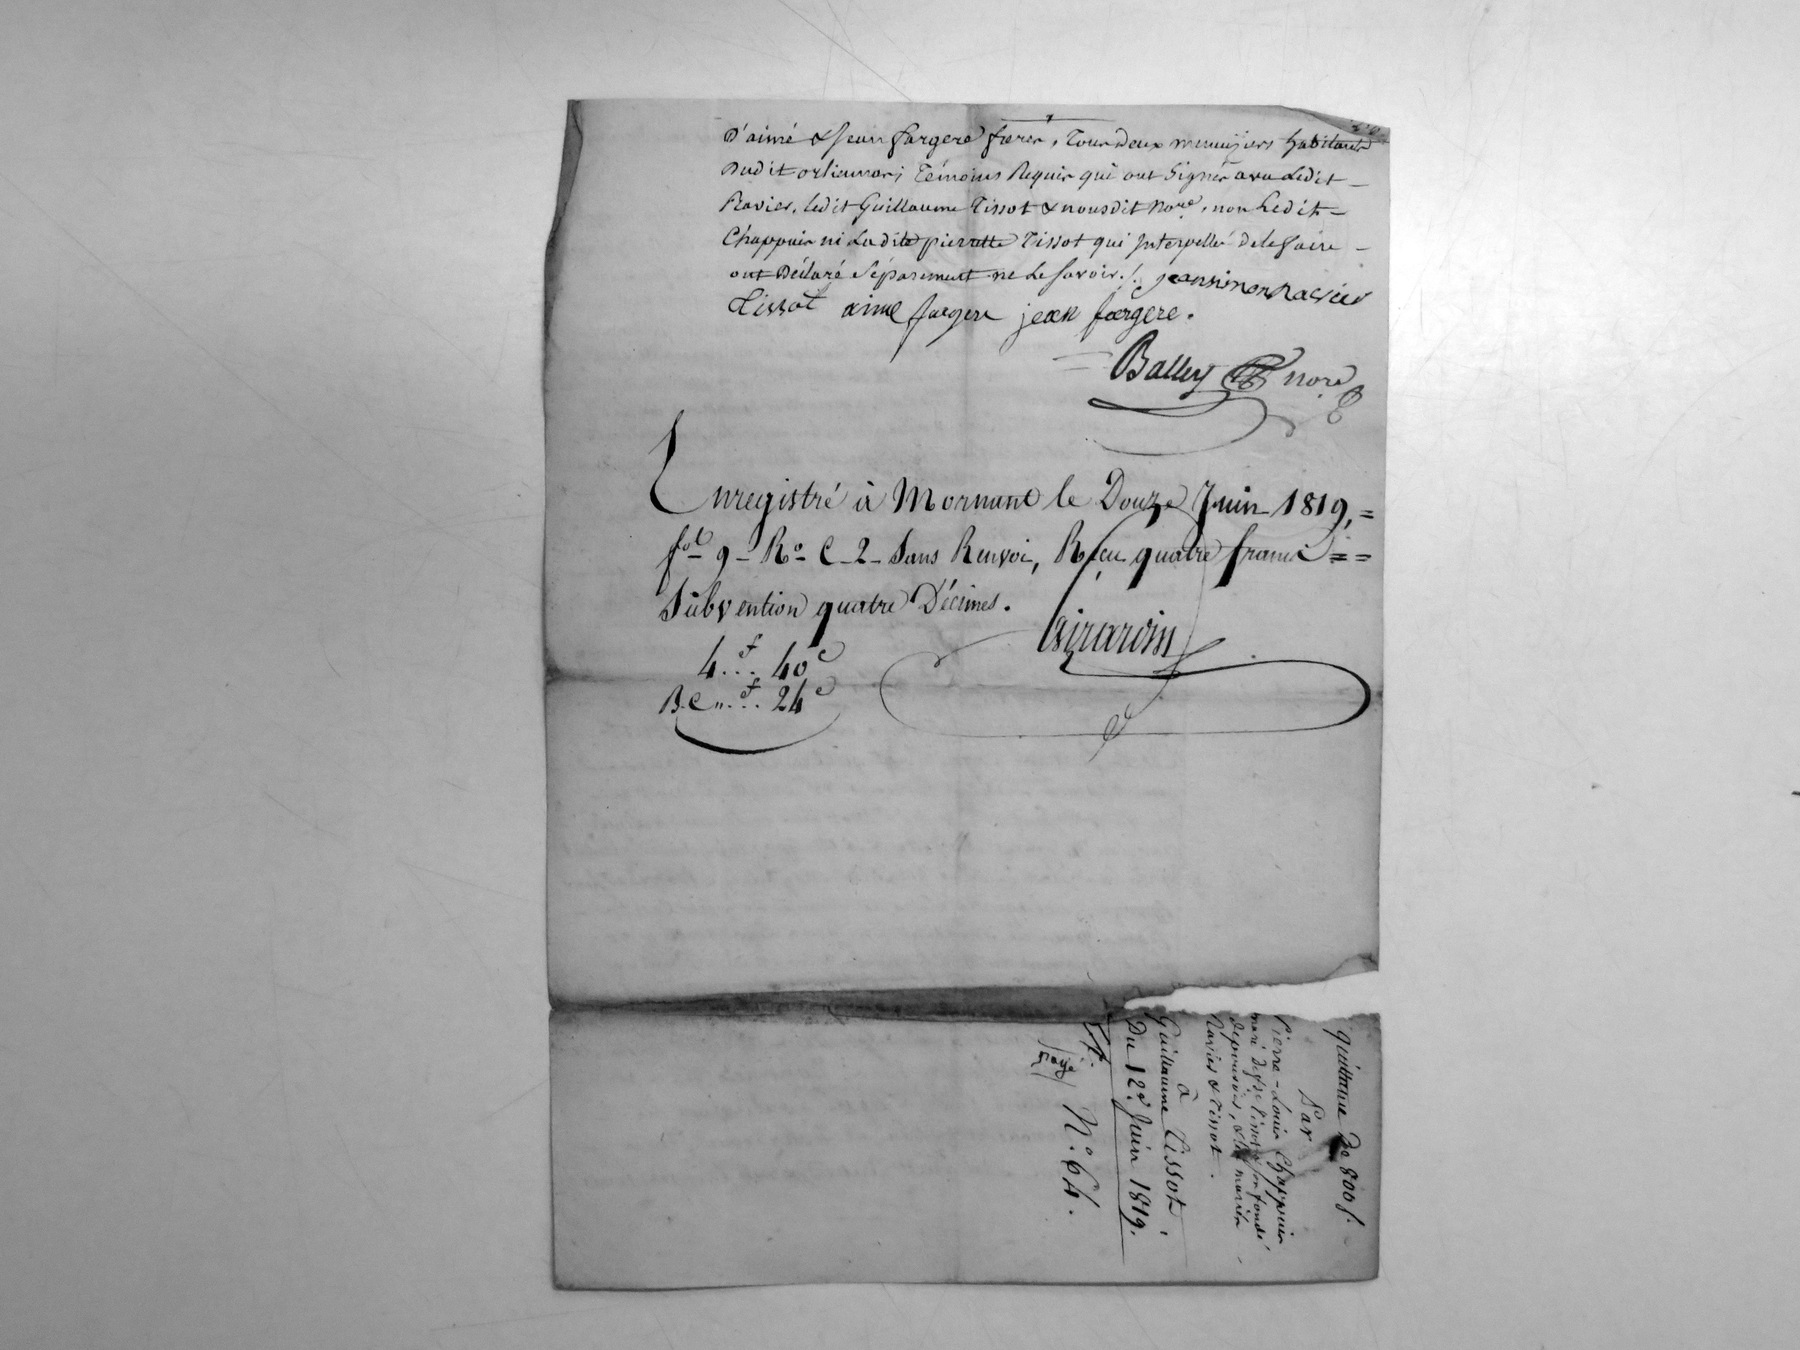 D'aimé & Jean fargere freres, Tous Deux menuisiers habitants
Dudit orlienas; Témoins Requis qui ont Signés avec Ledit
Ravier, ledit Guillaume Tissot & nousdit Nore, non Ledit
Chappuis ni Ladite pierrette Tissot qui Interpellés de le faire
ont Déclaré Séparément ne le Savoir./. jean simon Ravier
Tissot aimé fargere jean fargere.
Balley nore
Enregistré à Mornant le Douze Juin 1819,=
fol 9 - Ro - C - 2 - Sans Renvoi, Reçu quatre francs ==
Subvention quatre Décimes.
Girardin
4.f.. 40c
B.C „.f.. 24c
quittance De 800 f.
Par
Pierre-Louis Chappuis
mari de pte Tissot fondé
de pouvoirs, & les mariés
Ravier & Tissot.
à
Guillaume Tissot,
Du 12e. Juin 1819.
payé
No. 64.